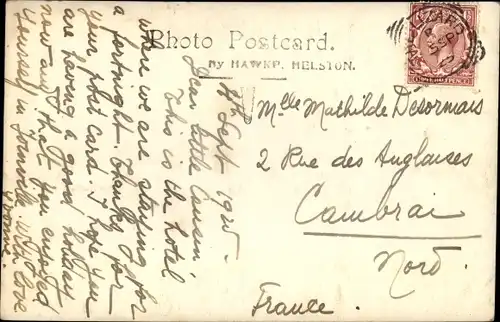 Photo Postcard.
By HAWKE, HELSTON.
LIZARD
Sept 1925.
Dear little Cousin
This is the hotel
where we are staying for
a fortnight. Thanks for
your post card. I hope you
are having a good holiday
now and that you enjoyed
yourself in Joinville. With love
Yvonne.
Mlle Mathilde Desormais
2 Rue des Anglaises
Cambrai
Nord.
France.